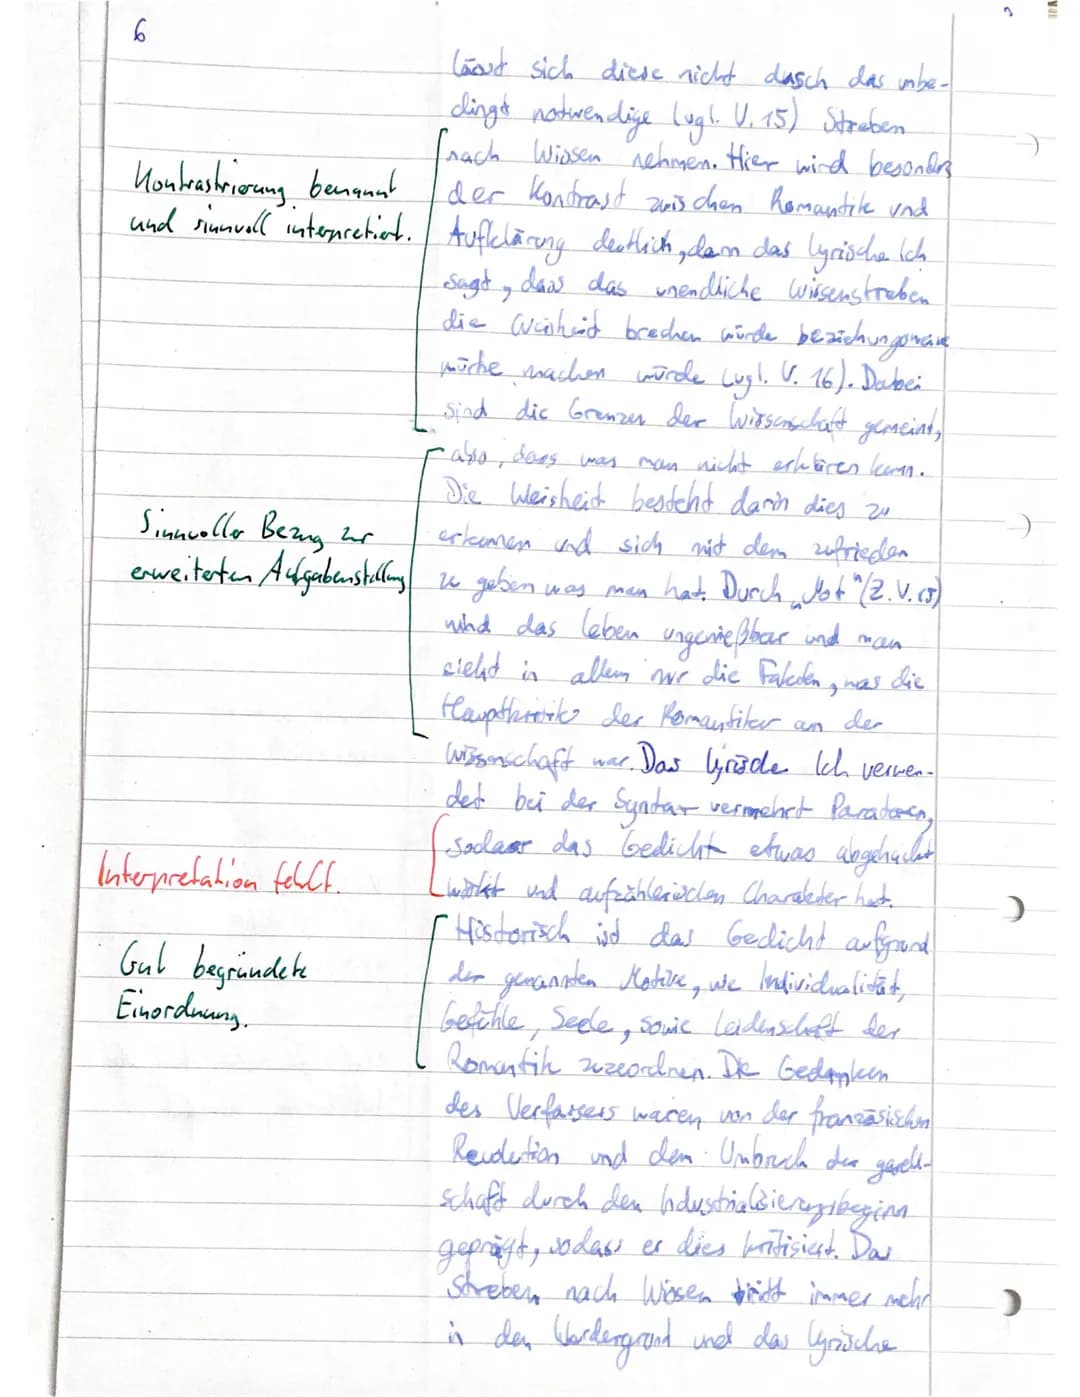 6
lässt sich diese nicht durch das unbe-
dingt notwendige (vgl. V. 15) Streben
nach Wissen nehmen. Hier wird besonders
der Kontrast zwischen Romantik und
Aufklärung deutlich, denn das lyrische Ich
sagt, dass das unendliche Wissenstreben
die Weisheit brechen würde beziehungsweise
mürbe machen würde (vgl. V. 16). Dabei
sind die Grenzen der Wissenschaft gemeint,
also, dass was man nicht erklären kann.
Die Weisheit besteht darin dies zu
erkennen und sich mit dem zufrieden
zu geben was man hat. Durch „Not" (Z. V. 15)
wird das Leben ungenießbar und man
sieht in allem nur die Fakten, was die
Hauptkritik der Romantiker an der
Wissenschaft war. Das lyrische Ich verwen-
det bei der Syntax vermehrt Parataxen,
sodass das Gedicht etwas abgehackt
wirkt und aufzählerischen Charakter hat.
Historisch ist das Gedicht aufgrund
der genannten Motive, wie Individualität,
Gefühle, Seele, sowie Leidenschaft der
Romantik zuzeordnen. Die Gedanken
des Verfassers waren von der französischen
Revolution und dem Umbruch der gesell-
schaft durch den Industrialisierungsbeginn
geprägt, sodass er dies kritisiert. Das
Streben nach Wissen tritt immer mehr
in den Vordergrund und das lyrische
Kontrastrierung benannt
und sinnvoll interpretiert.
Sinnvoller Bezug zur
erweiterten Aufgabenstellung
Interpretation fehlt.
Gut begründete
Einordnung.